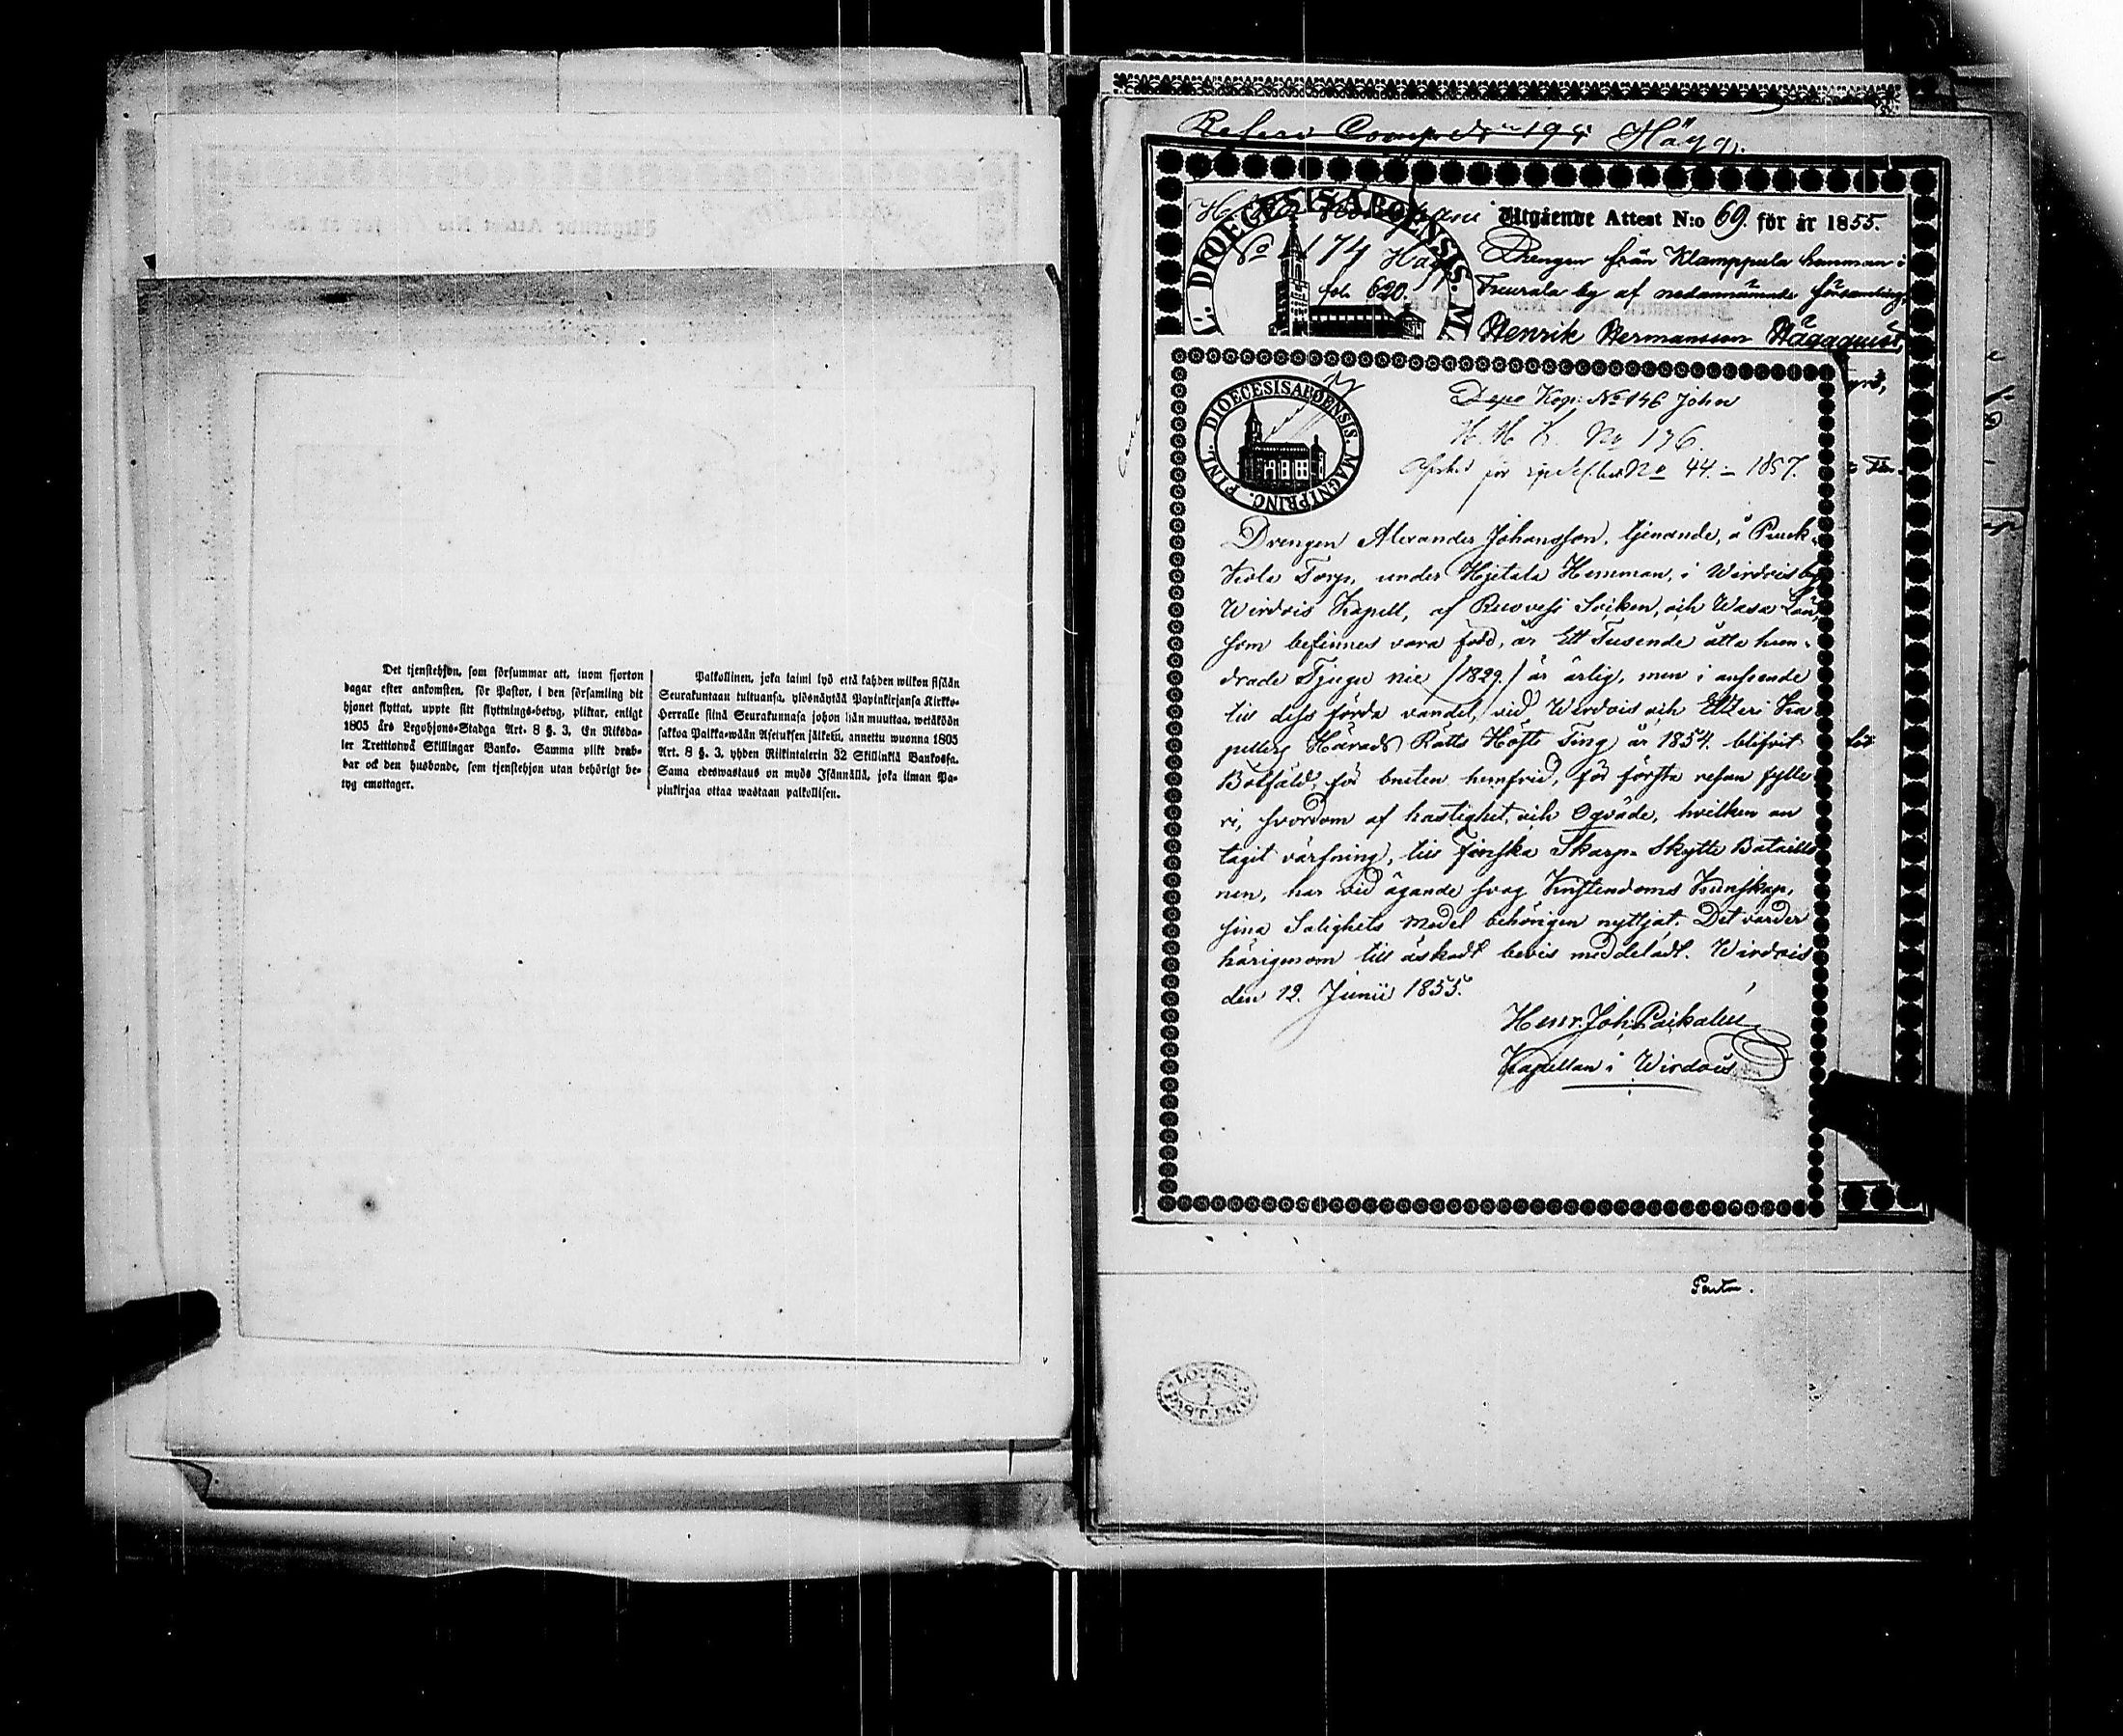 Det tjenstehjon, som försummar att, inom fjorton
dagar efter ankomsten, för Pastor, i den församling dit
hjonet flyttat, uppte sitt flyttnings-betyg, pliktar, enligt
1805 års Legohjons-Stadga Art. 8 §. 3, En Riksda-
ler Trettiotvå Skillingar Banko. Samma plikt drab-
bar ock den husbonde, som tjenstehjon utan behörigt be-
tyg emottager.
Palkollinen, joka laimi lyö että kahden wiikon sisään
Seurakuntaan tultuansa, ylösnäytää Papinkirjansa Kirkko-
Herralle siinä Seurakunnasa johon hän muuttaa, wetäköön
sakkoa Palkka-wään Asetuksen jälkeen, annettu wuonna 1805
Art. 8 §. 3, yhden Riikintalerin 32 Skillinkiä Bankossa.
Sama edeswastaus on myös Isännällä, joka ilman Pa-
pinkirjaa ottaa wastaan palkollisen.
Hägg.
Utgående Attest N:o 69. för år 1855.
174 Hägg
Drengen från Klamppula hemman i
fol. 620.
by af nedannämnde församling,
Henrik Hermansson Häggquist,
DIOECESIS ABOENSIS. MAGNI PRINC. FINL.
Kop: No 146 John
No 136.
No 44. – 1857.
Drengen Alexander Johansson, tjenande, å
Torp, under Hjetala Hemman, i Wirdois by
Wirdois Kapell, af Ruovesi Socken, och Wasa Län,
som befinnes vara född, år Ett Tusende åtta hun-
drade Tjugu nie /1829/ är ärlig, men i anseende
till dess förda vandel, vid Wirdois och Etzeri Ka
pellers Härads Rätts Höste Ting år 1854. blifvit
Botfäld, för bruten hemfrid, för första resan fylle
ri, svordom af hastighet, och Oqväde, hvilken an
tagit värfning, till Finska Skarp-Skytte Bataillo
nen, har vid ägande svag Kristendoms Kunskap,
sina Salighets Medel behörigen nyttjat. Det varder
härigenom till äskadt bevis meddeladt. Wirdois
den 12. Junii 1855.
Henr. Joh. Paikalen
Kapellan i Wirdois
Pastor.
LOVISA